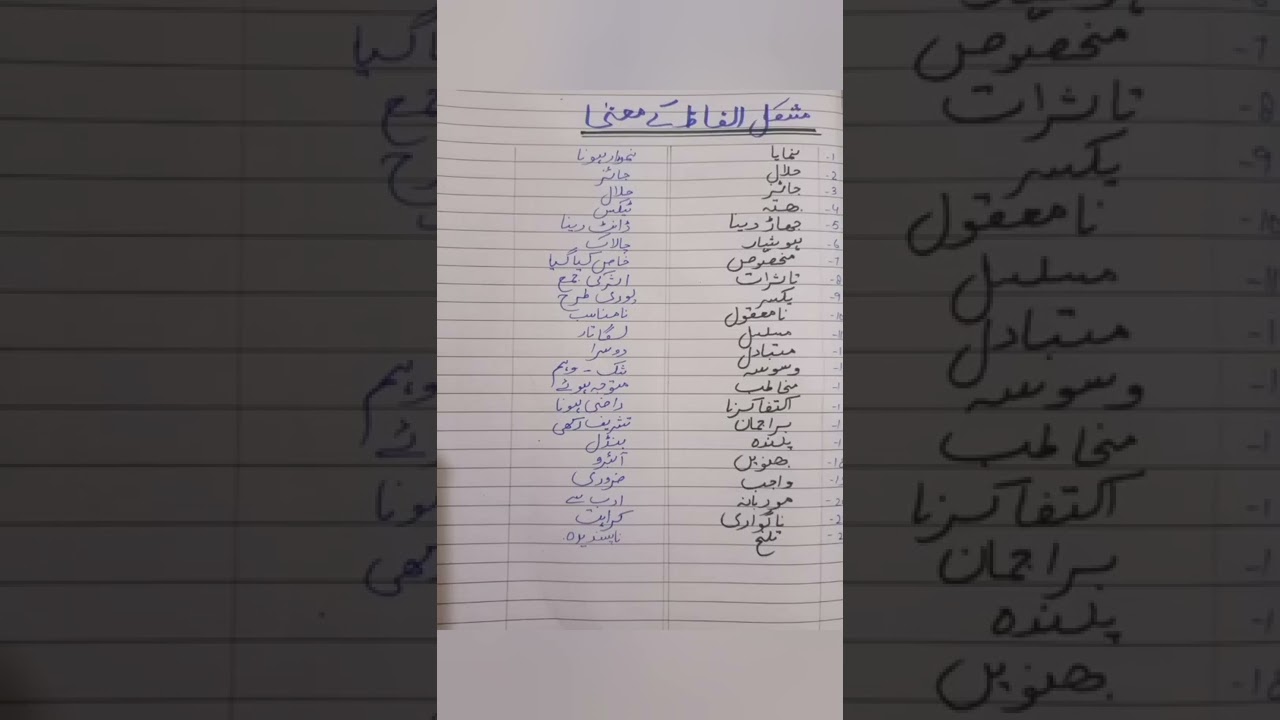 مشکل الفاظ کے معنیٰ
1- نمایا نمودار ہونا
2- حلال جائز
3- جائز حلال
4- بھتہ ٹیکس
5- جھاڑ دینا ڈانٹ دینا
6- ہوشیار چالاک
7- مخصوص خاص کیا گیا
8- تاثرات اثر کی جمع
9- یکسر پوری طرح
10- نامعقول نامناسب
11- مسلسل لگاتار
1- متبادل دوسرا
1- وسوسہ شک - وہم
1- مخاطب متوجہ ہوئے
1- اکتفا کرنا راضی ہونا
1- براجمان تشریف رکھی
1- پلندہ بنڈل
18- بھنویں آئبرو
1- واجب ضروری
20- موربانہ ادب سے
2- ناگواری کراہت
2- تلخ ناپسندیدہ